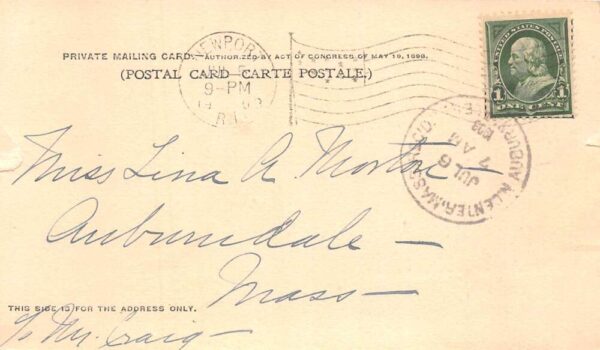 PRIVATE MAILING CARD.—AUTHORIZED BY ACT OF CONGRESS OF MAY 19, 1898.
(POSTAL CARD—CARTE POSTALE.)
NEWPORT
9-PM
R.I.
UNITED STATES POSTAGE
1 1
ONE CENT
AUBURN
7 AM
JUL 6
MASS.
Miss Lina A. Morton —
Auburndale —
Mass —
THIS SIDE IS FOR THE ADDRESS ONLY.
c/o Mr. Craig —